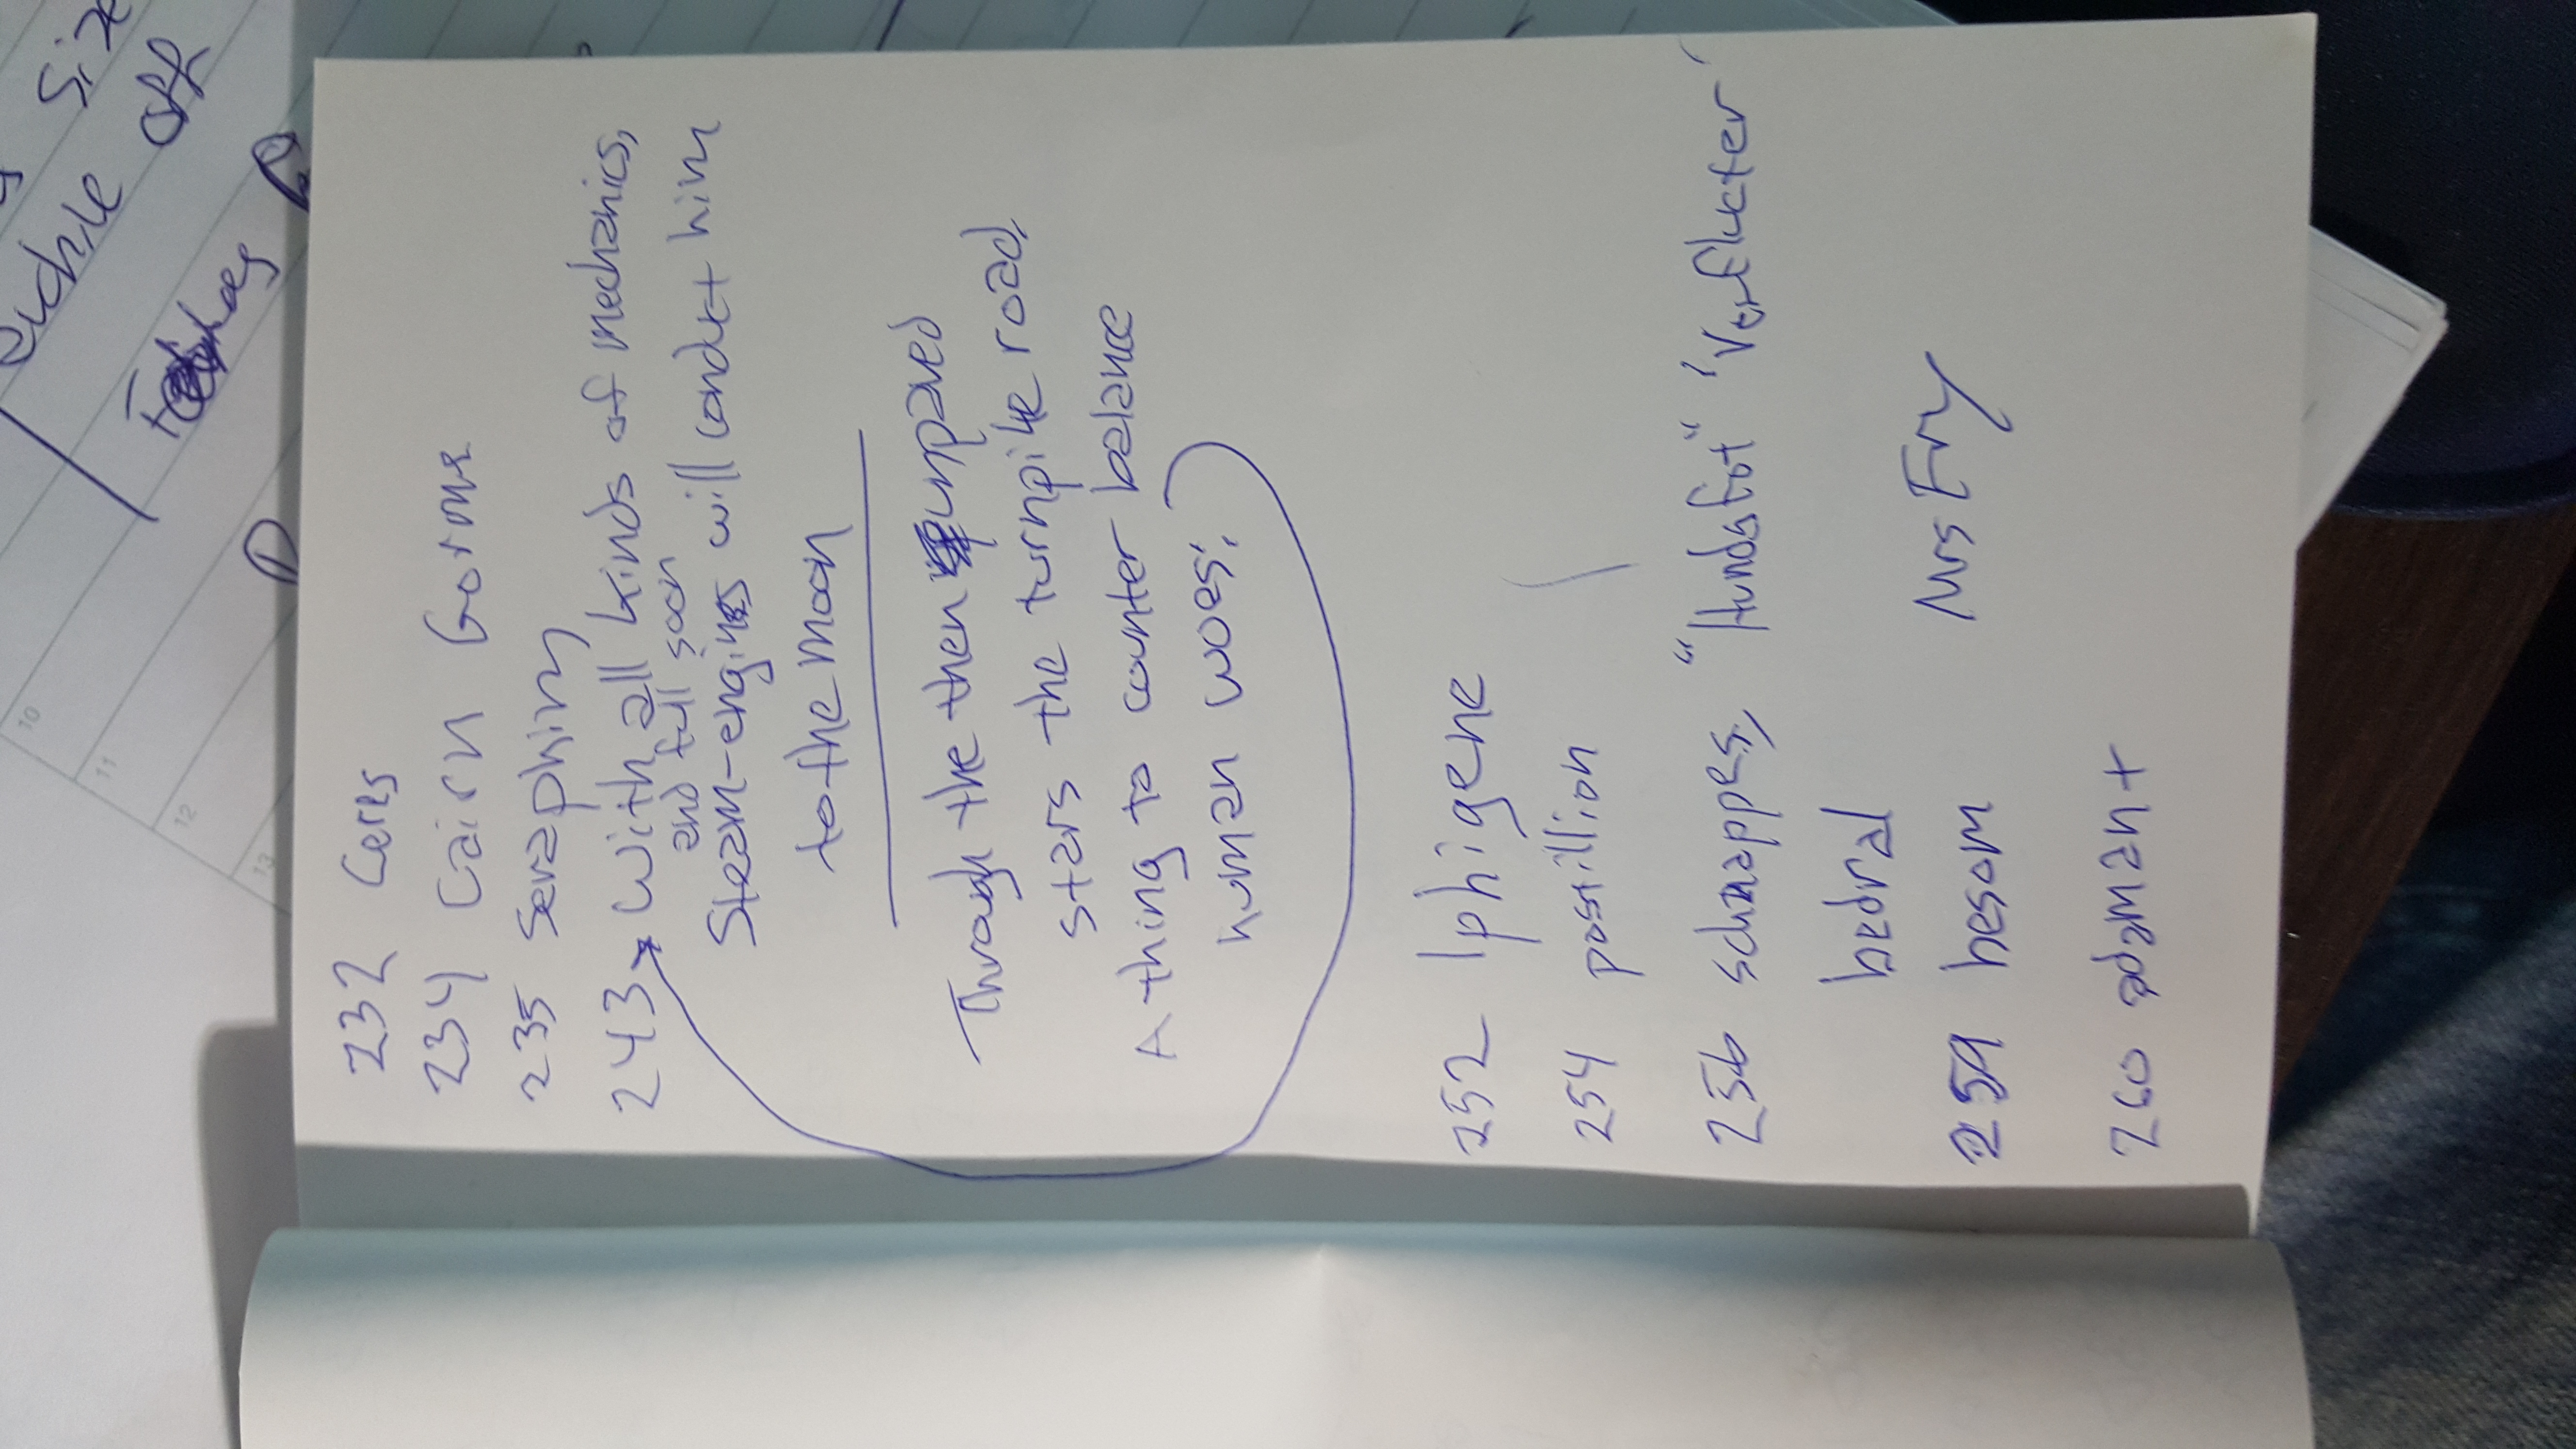 232 Ceres
234 Cairn Gorme
235 seraphim
243 With all kinds of mechanics,
and full soon
Steam-engines will conduct him
to the moon
Through the then unpaved
stars the turnpike road,
A thing to counter balance
human woes:
252 Iphigene
254 postillion
256 schnapps, "Hundsfot" 'Verflucter'
bedral
259 besom Mrs Fry
260 adamant
size
off
10
11
12
13